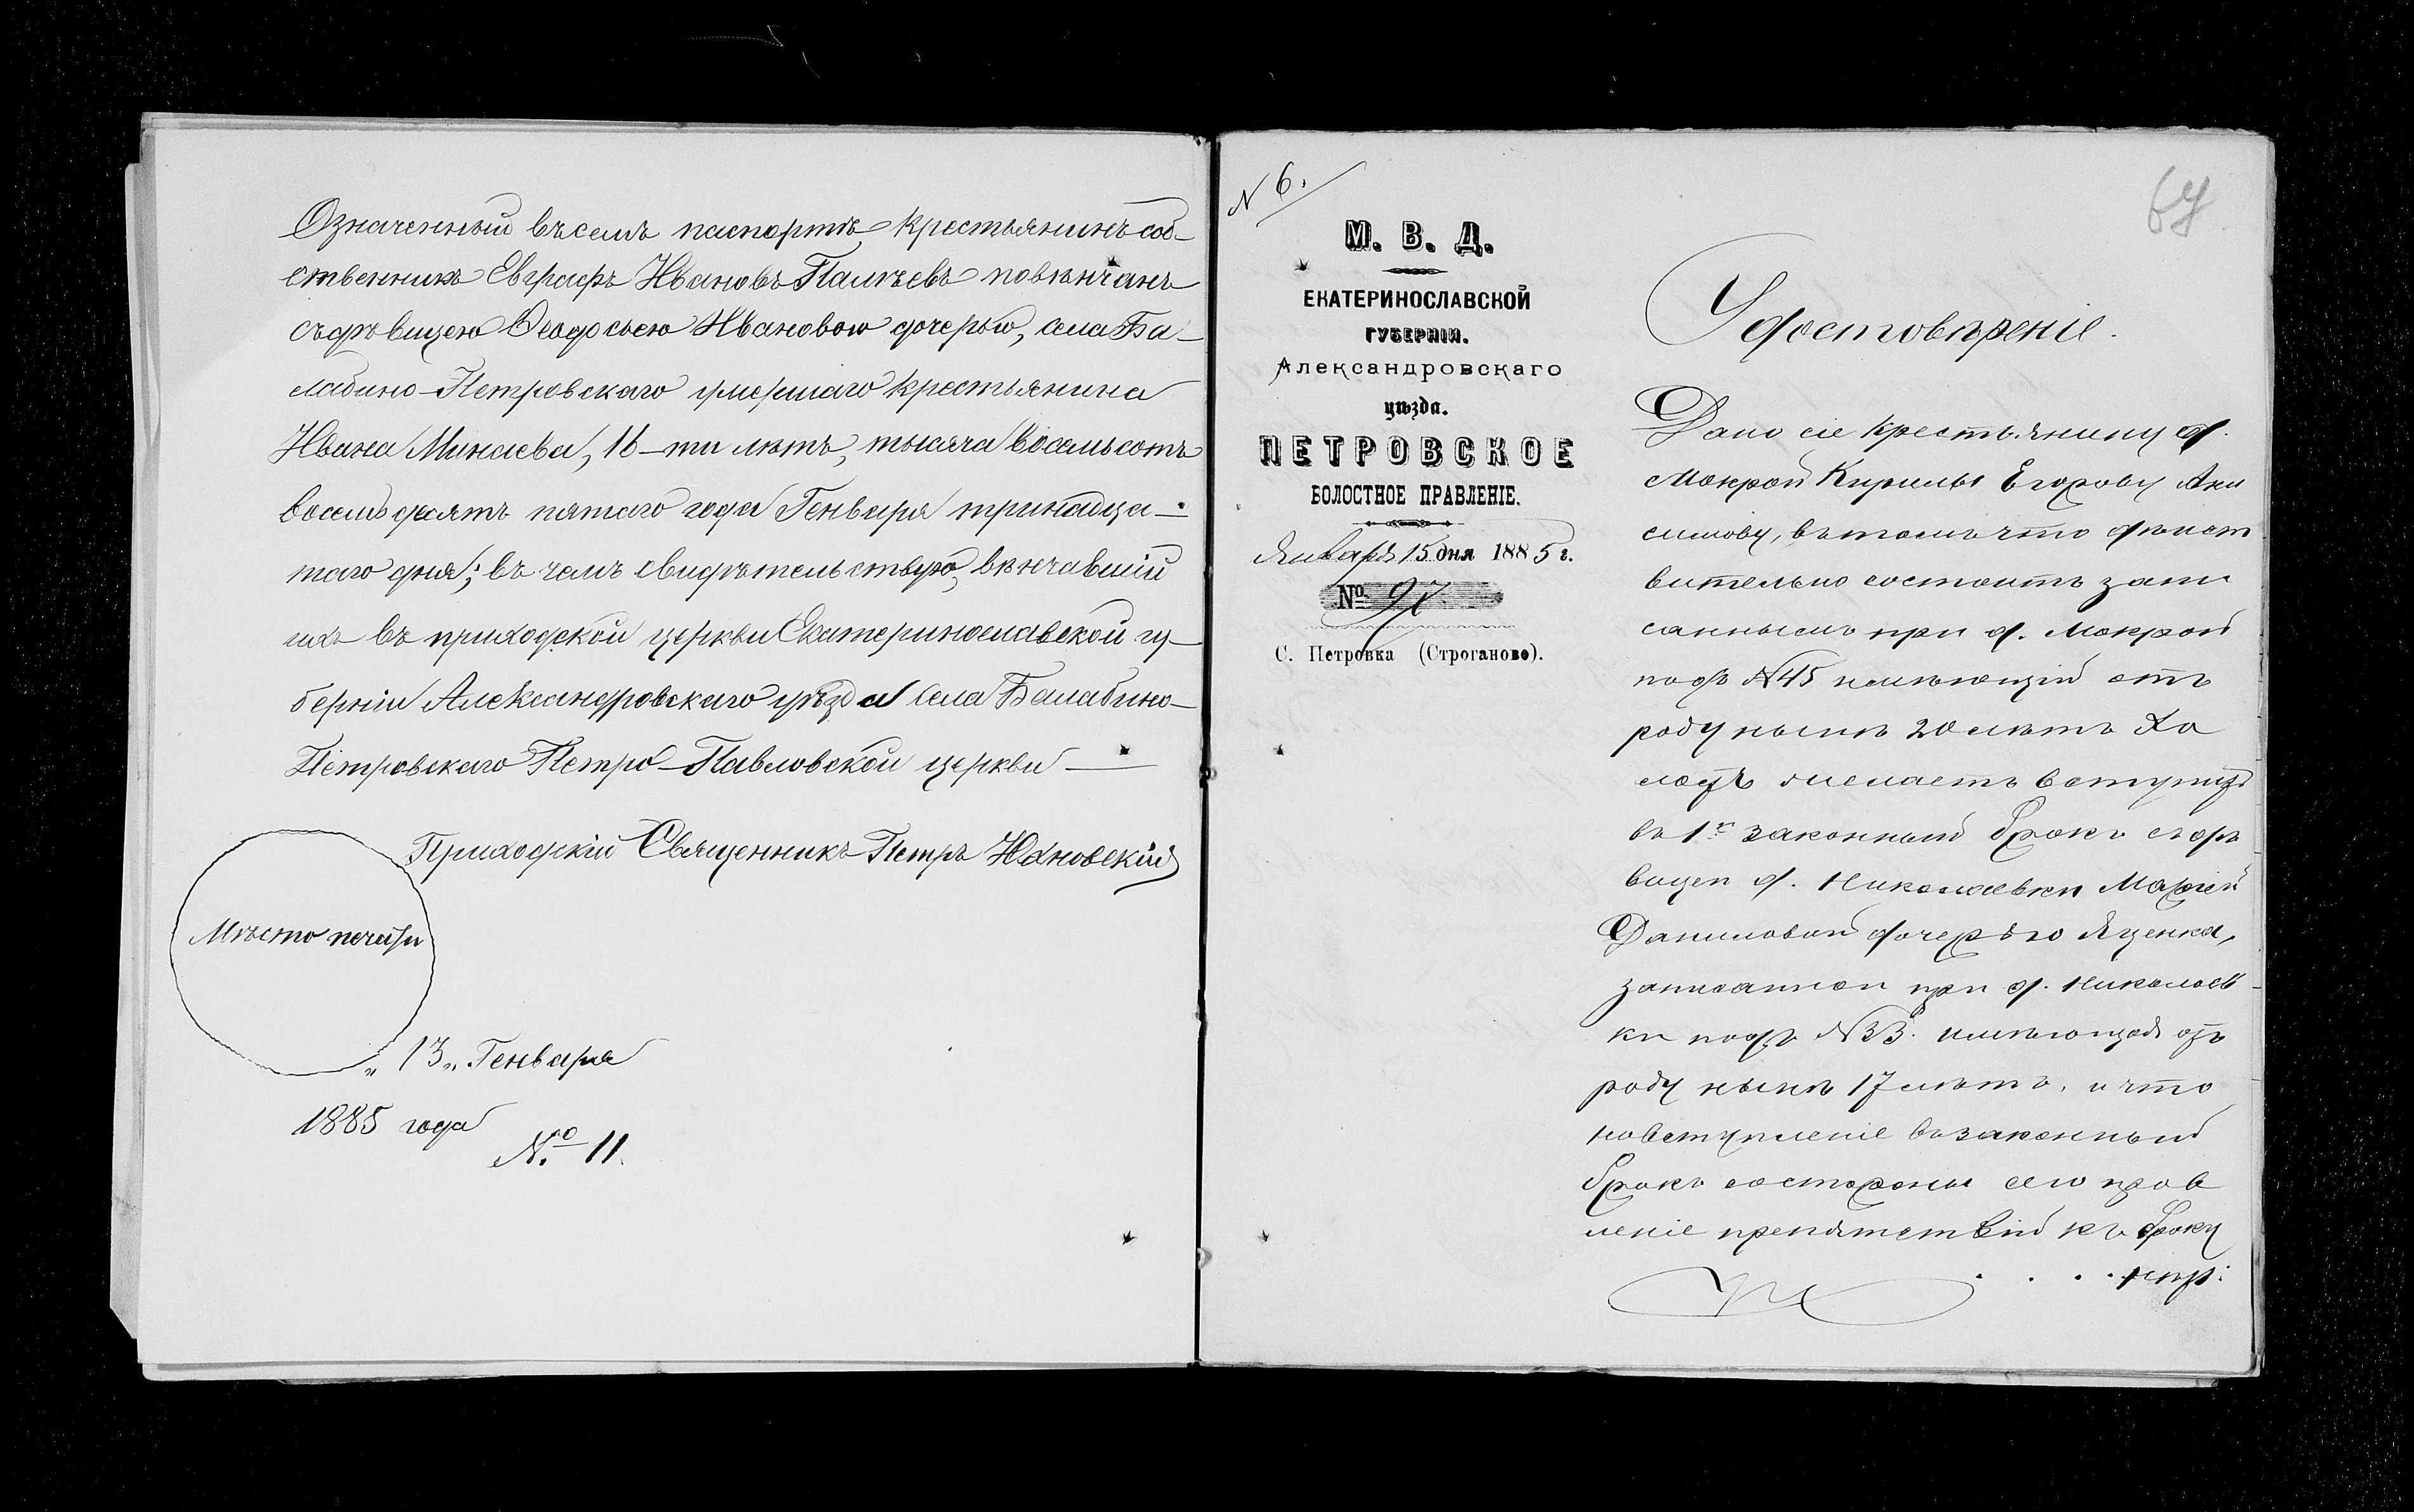 Означенный въ семъ паспортѣ крестьянинъ соб-
ственникъ Евграфъ Ивановъ Палчѣевъ повѣнчанъ
съ дѣвицею Ѳеодосьею Ивановою дочерью, села Ба-
лабино-Петровскаго умершаго крестьянина
Ивана Минаева, 16-ти лѣтъ, тысяча восемьсотъ
восемьдесятъ пятаго года Генваря тринадца-
таго дня; въ чемъ свидѣтельствую, вѣнчавшій
ихъ въ приходской церкви Екатеринославской гу-
берніи Александровскаго уѣзда села Балабино-
Петровскаго Петро-Павловской церкви
Приходскій Священникъ Петръ Яновскій
Мѣсто печати
„13„ Генваря
1885 года
№ 11.
N 6.
М. В. Д.
ЕКАТЕРИНОСЛАВСКОЙ
ГУБЕРНІИ.
Александровскаго
уѣзда.
ПЕТРОВСКОЕ
ВОЛОСТНОЕ ПРАВЛЕНІЕ.
Января 15 дня 1885 г.
№ 97
С. Петровка (Строганово).
Удостовѣреніе.
Дано сіе крестьянину д.
Мокрой Кирилы Егорову Ани
симову, въ томъ что дѣйст
вительно состоитъ запи
саннымъ при д. Мокрой
подъ N 45 имѣющій отъ
роду нынѣ 20 лѣтъ Хо
лостъ желаетъ вступить
въ 1й законный бракъ съ дѣ
вицей д. Николаевки Маріей
Даниловой дочерью Яценка,
записанной при д. Николаев
ки подъ N 33. имѣющой отъ
роду нынѣ 17 лѣтъ, и что
на вступленіе въ законный
бракъ со стороны сего прав
леніе препятствій къ браку